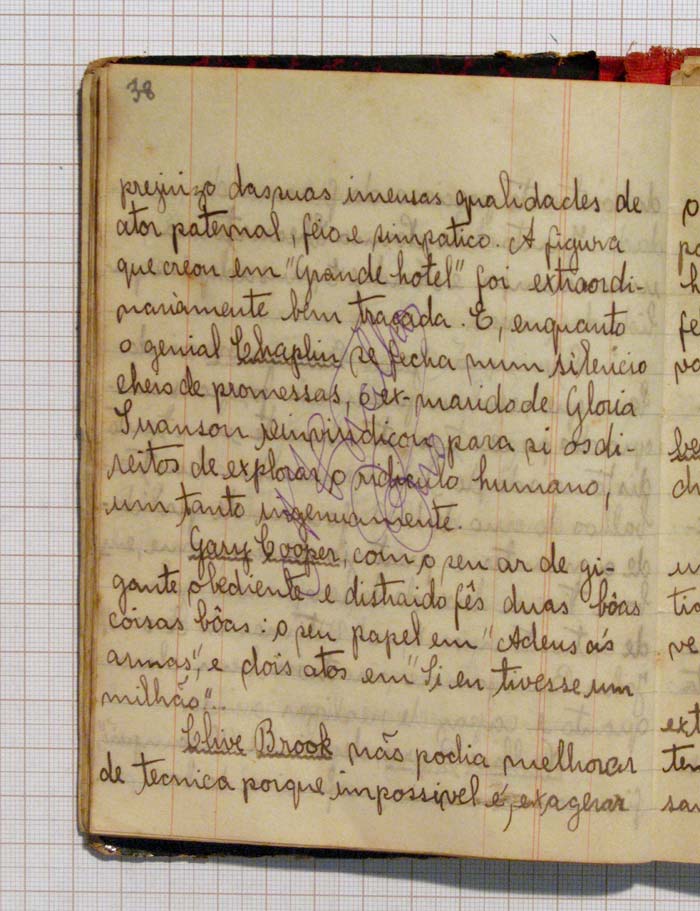 38
prejuizo das suas imensas qualidades de
ator paternal, feio e simpatico. A figura
que creou em "Grande hotel" foi extraordi-
nariamente bem traçada. E, enquanto
o genial Chaplin se fecha num silencio
cheio de promessas, o ex-marido de Gloria
Swanson reinvindicou para si os di-
reitos de explorar o ridiculo humano,
um tanto ingenuamente.
Gary Cooper, com o seu ar de gi-
gante obediente e distraido fês duas bôas
coisas bôas: o seu papel em "Adeus ás
armas", e dois atos em "Si eu tivesse um
milhão"..
Clive Brook não podia melhorar
de tecnica porque impossivel é, exagerar